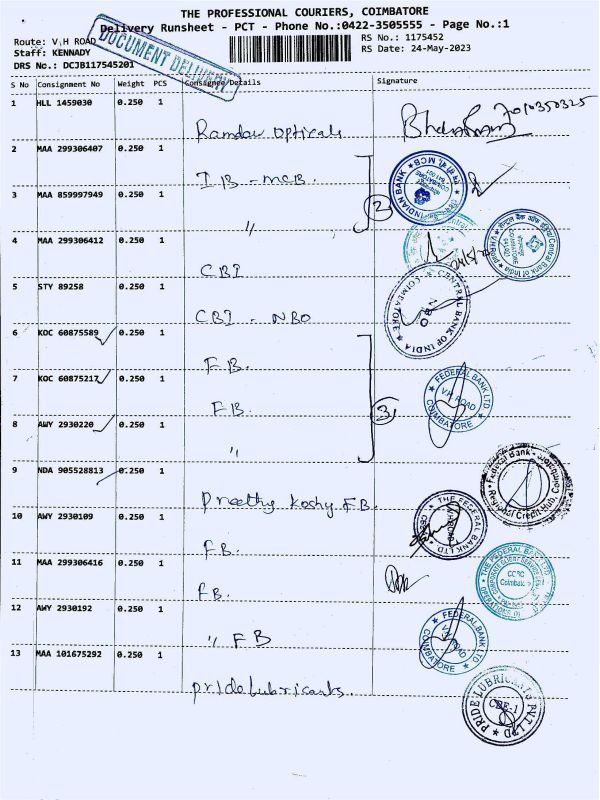 THE PROFESSIONAL COURIERS, COIMBATORE
Delivery Runsheet - PCT - Phone No.:0422-3505555 - Page No.:1
Route: V.H ROAD
RS No.: 1175452
Staff: KENNADY
RS Date: 24-May-2023
DRS No.: DCJB117545201
DOCUMENT DELIVERY
S No Consignment No Weight PCS Consignee/Details Signature
1 HLL 1459030 0.250 1
Ramdev Opticals
7010350325
2 MAA 299306407 0.250 1
IB - MCB.
INDIAN BANK
3 MAA 859997949 0.250 1
"
2
4 MAA 299306412 0.250 1
CBI
5 STY 89258 0.250 1
CBI - NBO
CENTRAL BANK OF INDIA
COIMBATORE
NBO
6 KOC 60875589 0.250 1
FB.
7 KOC 60875217 0.250 1
FB.
3
FEDERAL BANK LTD
V.H. ROAD
COIMBATORE
8 AWY 2930220 0.250 1
"
9 NDA 905528813 0.250 1
Preethy Koshy FB.
Federal Bank
10 AWY 2930109 0.250 1
FB.
THE FEDERAL BANK LTD
11 MAA 299306416 0.250 1
FB.
THE FEDERAL BANK LTD
12 AWY 2930192 0.250 1
" FB
FEDERAL BANK LTD
V.H. ROAD
COIMBATORE
13 MAA 101675292 0.250 1
pride Lubricants.
PRIDE LUBRICANTS PVT LTD
CBE-1